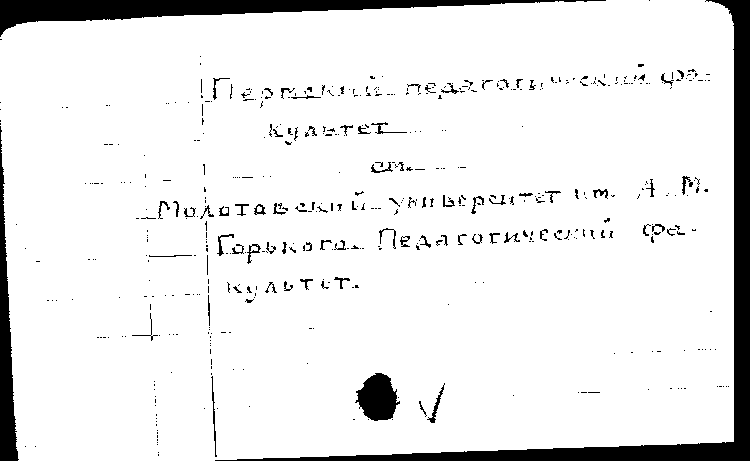 Пермский педагогический фа-
культет
см.
Молотовский университет им. А. М.
Горького. Педагогический фа-
культет.